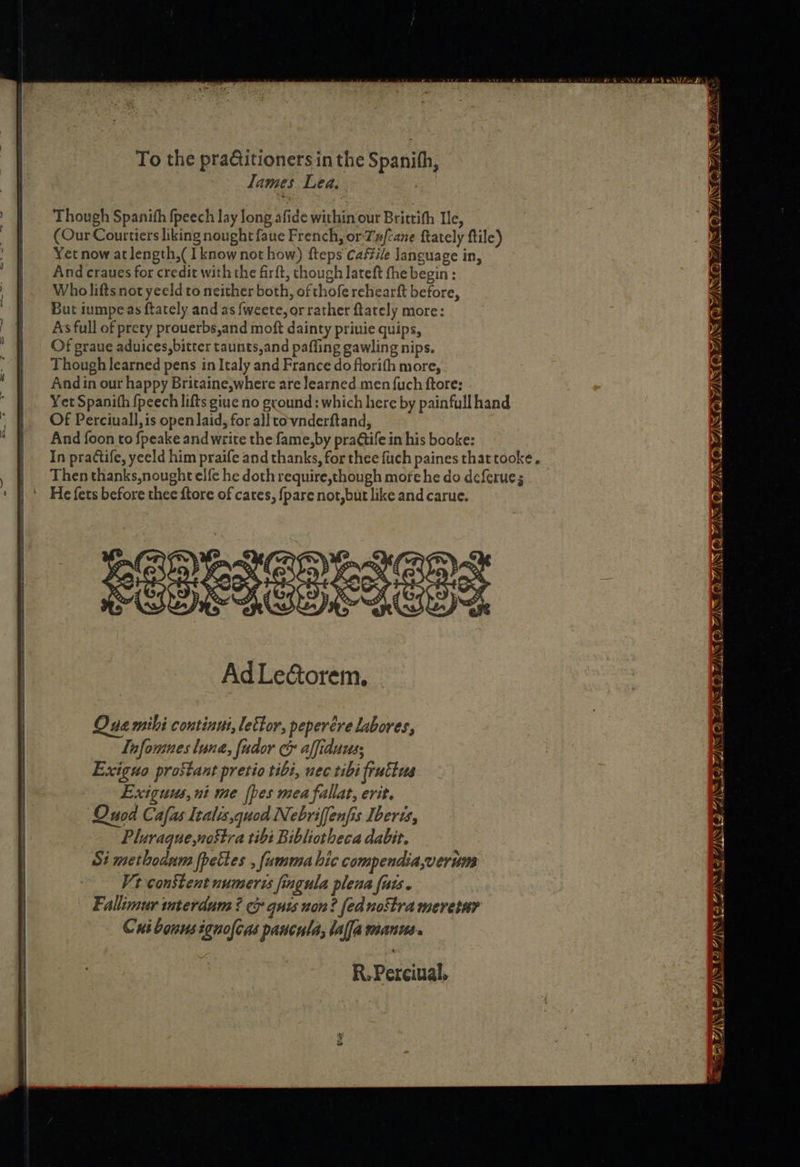 To the practitioners in the Spanish,
Iames Lea.
Though Spaniſh ſpeech lay long aſide within our Brittiſh Ile,
(Our Courtiers liking nought ſaue French, or Tuſcane ſtately ſtile)
Yet now at length, ( I know not how) ſteps Caſtile language in,
And craues for credit with the firſt, though lateſt ſhe begin:
Who liſts not yeeld to neither both, of thoſe rehearſt before,
But iumpe as ſtately and as ſweete, or rather ſtately more:
As full of prety prouerbs, and moſt dainty priuie quips,
Of graue aduices, bitter taunts, and paſſing gawling nips.
Though learned pens in Italy and France do floriſh more,
And in our happy Britaine, where are learned men ſuch ſtore:
Yet Spaniſh ſpeech liſts giue no ground: which here by painfull hand
Of Perciuall, is open laid, for all to vnderſtand,
And ſoon to ſpeake and write the ſame, by practiſe in his booke:
In practiſe, yeeld him praiſe and thanks, for thee ſuch paines that tooke.
Then thanks, nought elſe he doth require, though more he do deſerue;
He ſets before thee ſtore of cates, ſpare not, but like and carue.
Ad Lectorem.
Quæ mihi continui, lector, peperêre labores,
Inſomnes lunæ, ſudor & aſſiduus;
Exiguo proſtant pretio tibi, nec tibi fructus
Exiguus, ni me ſpes mea fallat, erit.
Quod Caſas Italis, quod Nebriſſenſis Iberis,
Pluraque, noſtra tibi Bibliotheca dabit.
Si methodum ſpectes , ſumma hic compendia, verùm
Vt conſtent numeris ſingula plena ſuis.
Fallimur interdum? & quis non? ſed noſtra meretur
Cui bonus ignoſcas paucula, laſſa manus.
R. Perciual.